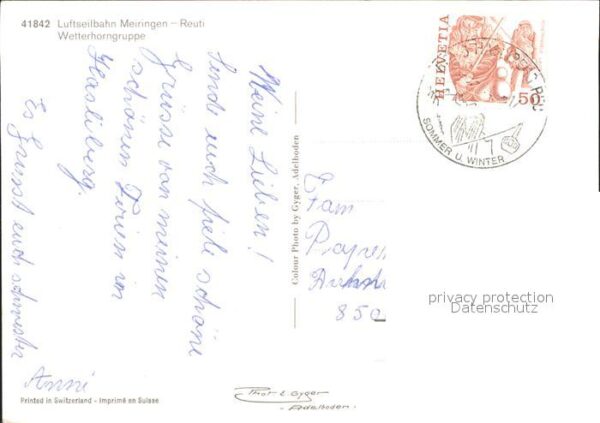 41842 Luftseilbahn Meiringen – Reuti
Wetterhorngruppe
Meine Lieben!
Sende euch viele schöne
Grüsse von meinen
schönen Ferien in
Hasliberg.
Es grüsst euch schwester
Anni
Printed in Switzerland - Imprimé en Suisse
Colour Photo by Gyger, Adelboden
Phot E Gyger
- Adelboden -
HELVETIA
50
SOMMER U. WINTER
Fam
850
privacy protection
Datenschutz